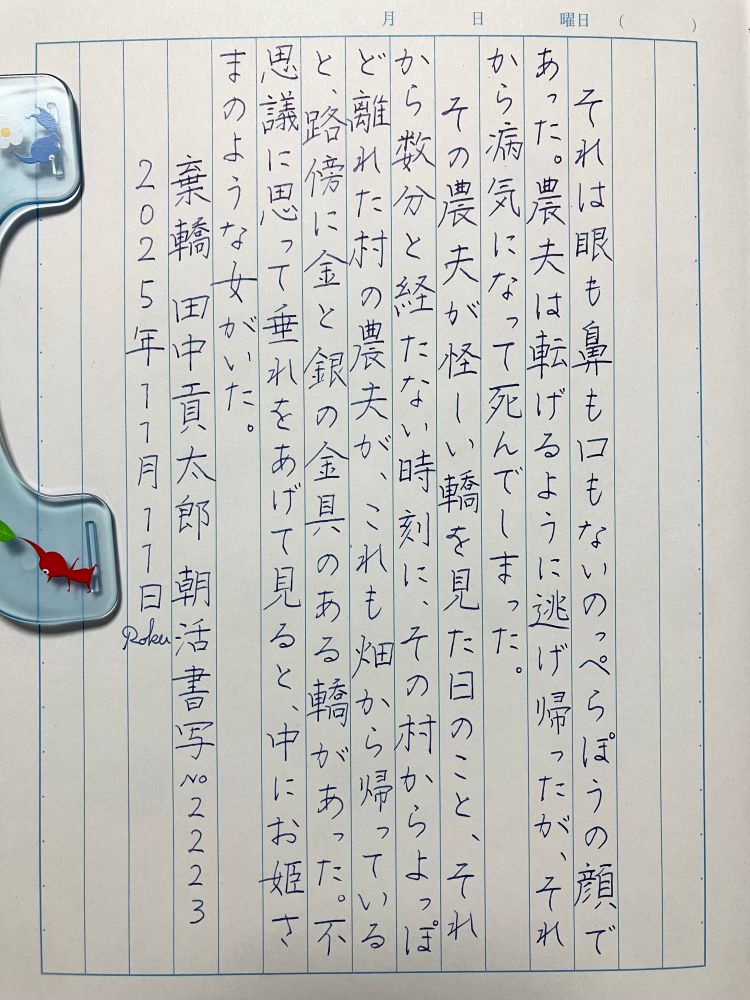 月 日 曜日 ( )
それは眼も鼻も口もないのっぺらぽうの顔で
あった。農夫は転げるように逃げ帰ったが、それ
から病気になって死んでしまった。
その農夫が怪しい轎を見た日のこと、それ
から数分と経たない時刻に、その村からよっぽ
ど離れた村の農夫が、これも畑から帰っている
と、路傍に金と銀の金具のある轎があった。不
思議に思って垂れをあげて見ると、中にお姫さ
まのような女がいた。
棄轎 田中貢太郎 朝活書写 No 2223
2025年11月11日 Roku